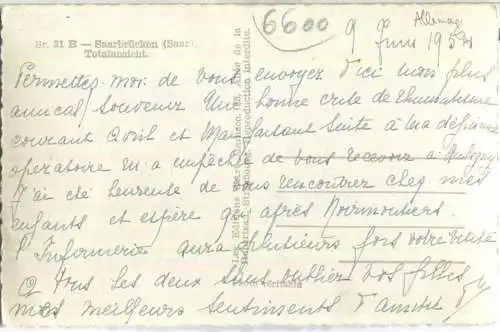 6600
Allemagne
9 Juin 1954
Sr. 21 B — Saarbrücken (Saar).
Totalansicht.
Permettez-moi de vous envoyez d'ici mon plus
amical souvenir Une bonne crise de rhumatisme
courant Avril et Mai faisant suite à ma
opératoire m'a empêché de vous recevoir à
J'ai été heureuse de vous rencontrer chez mes
enfants et espère qu'après Noirmoutiers
l'Infirmerie aura plusieurs fois votre visite
à tous les deux sans oublier vos filles
mes meilleurs sentiments d'amitié
Reproduction interdite.
véritable